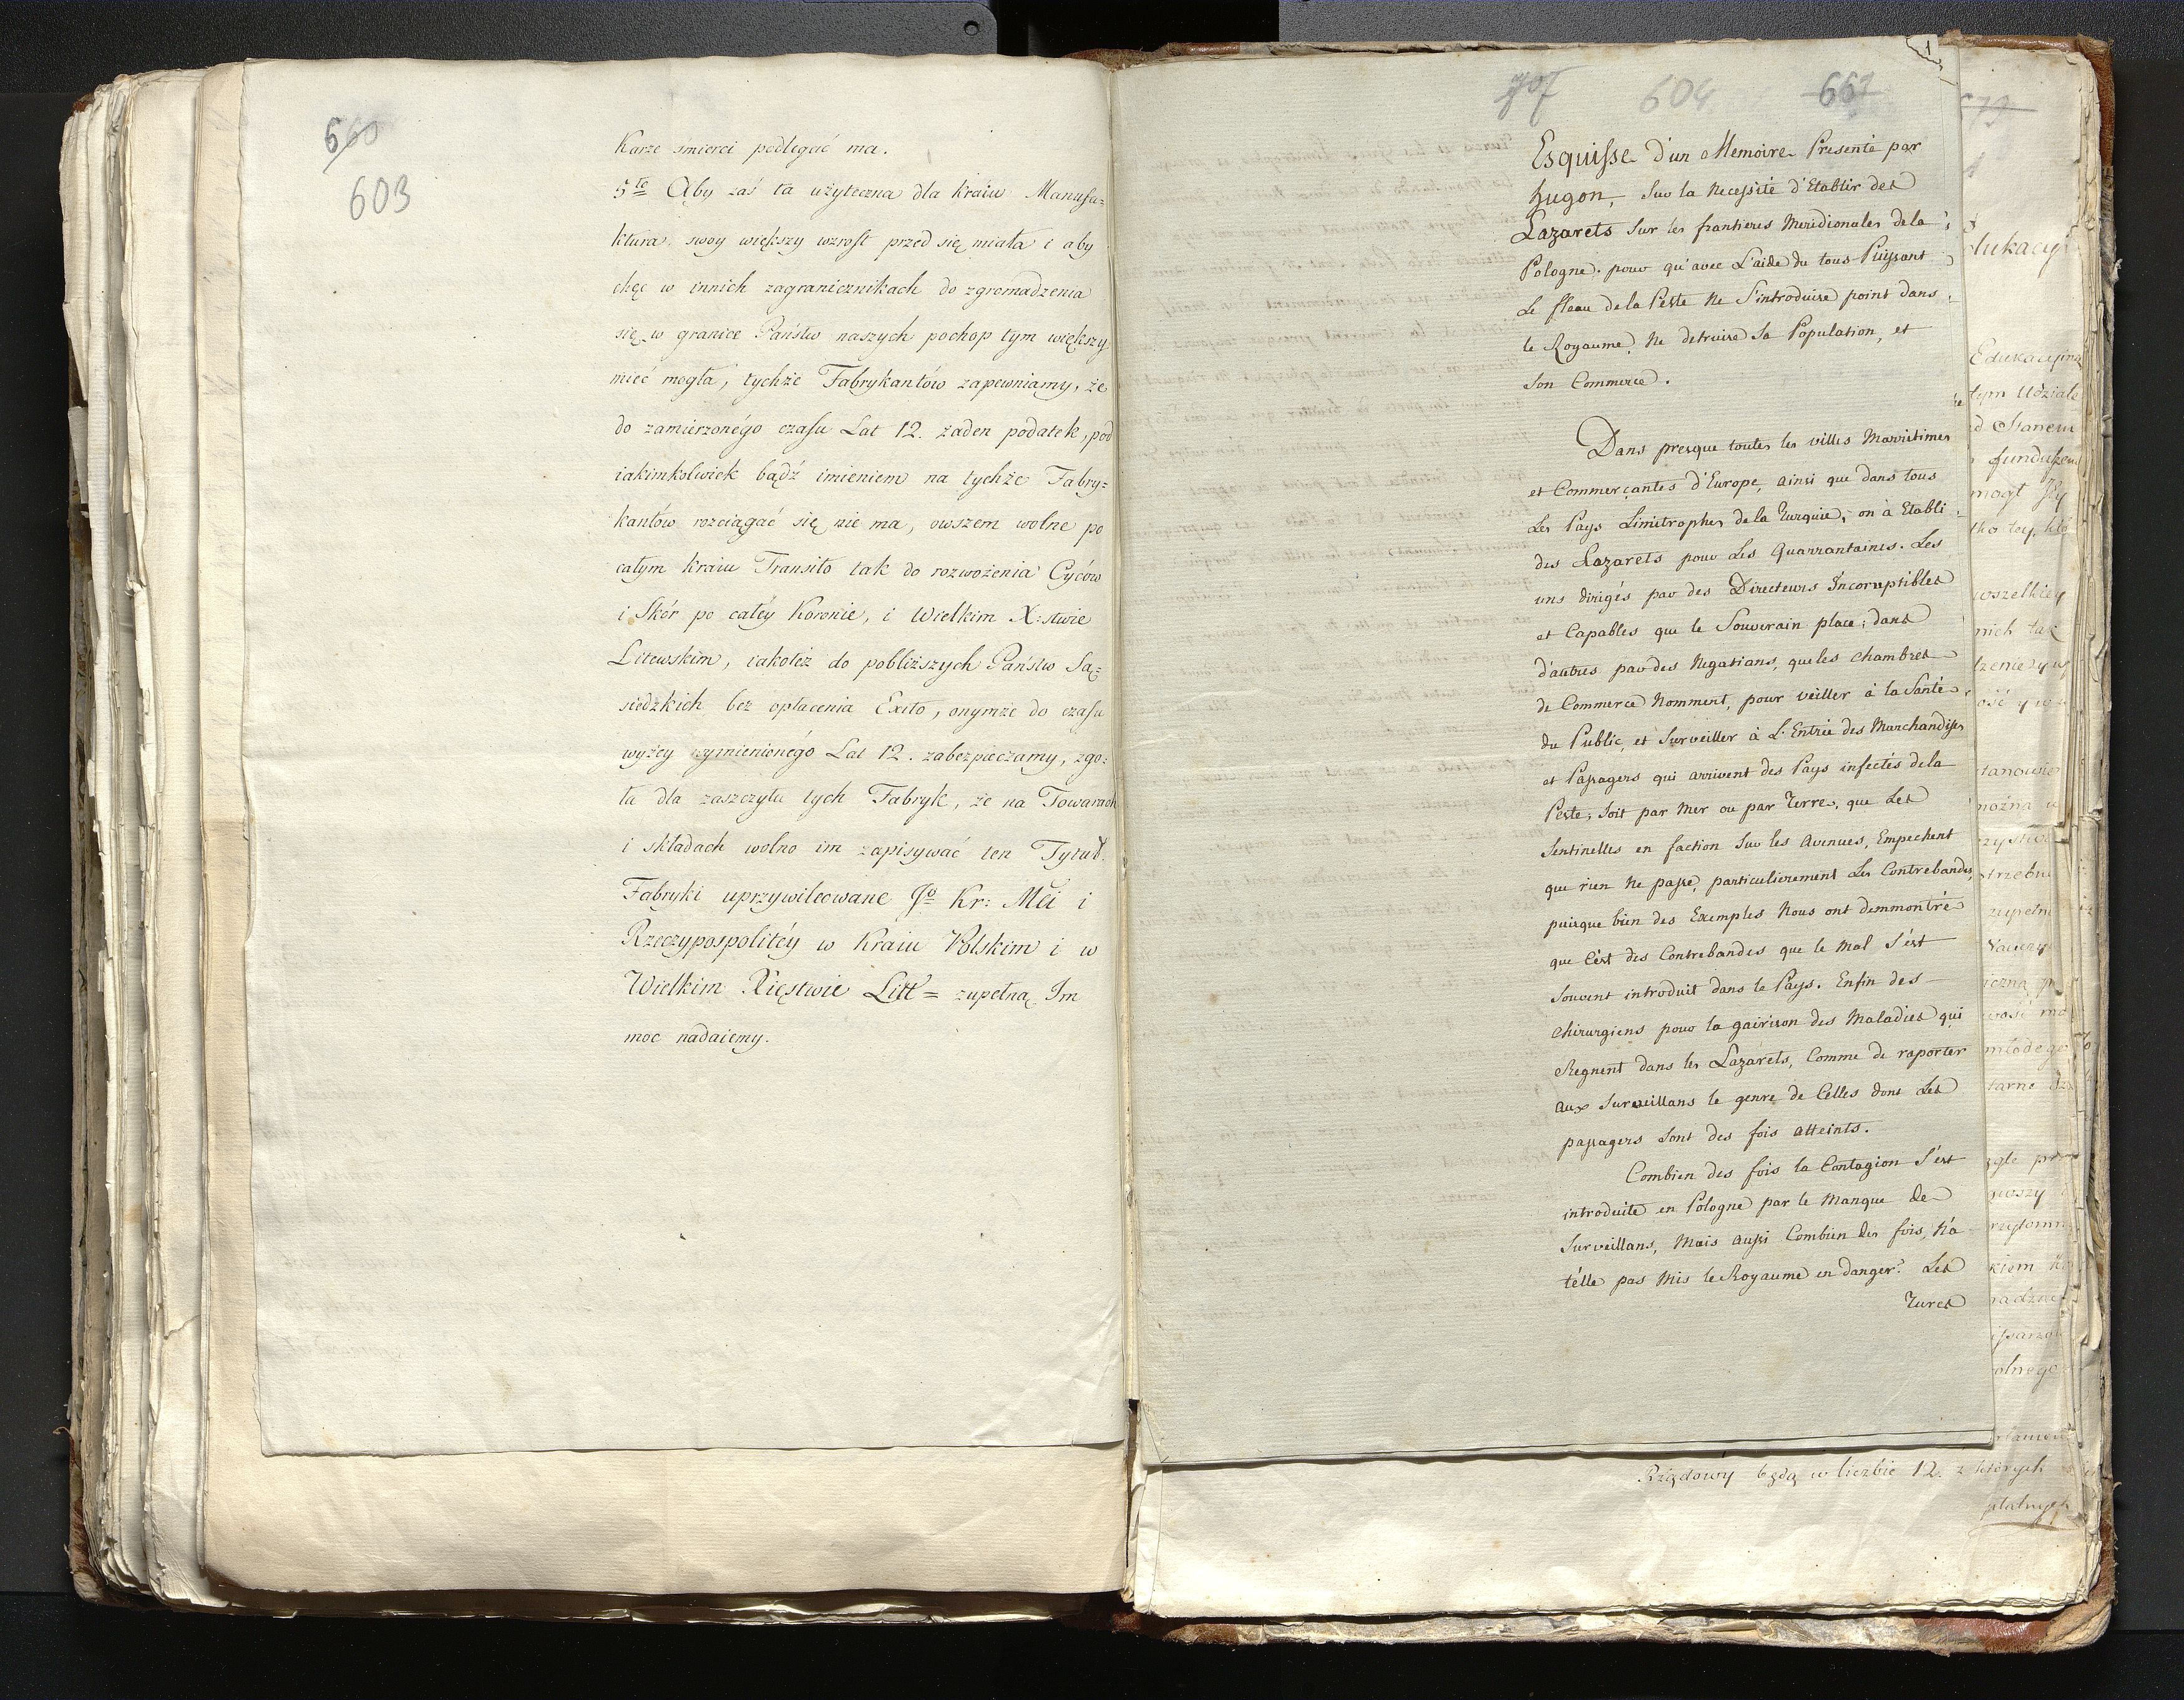 660
603
Karze śmierci podlegać ma.
5te Aby zaś ta użyteczna dla kraiu Manufa=
ktura swoy większy wzrost przed się miała i aby
chęc w innich zagranicznikach do zgromadzenia
się w granice Państw naszych pochop tym większy
mieć mogła, tychże Fabrykantów zapewniamy, że
do zamierzonégo czasu Lat 12. żaden podatek, pod
iakimkolwiek bądź imieniem na tychże Fabry=
kantów rozciągać się nie ma, owszem wolne po
całym kraiu Transito tak do rozwożenia Cyców
i Skór po całéy Koronie, i Wielkim X:stwie
Litewskim, iakoteż do pobliższych Państw Są=
siedzkich bez opłacenia Exito, onymże do czasu
wyżey wymienionégo Lat 12. zabezpieczamy, zgo=
ła dla zaszczytu tych Fabryk, że na Towarach
i składach wolno im zapisywać ten Tytuł.
Fabryki uprzywileowane Jo Kr: Mci i
Rzeczypospolitéy w Kraiu Polskim i w
Wielkim Xięstwie Litt= zupełną Im
moc nadaiemy.
1
604
661
Esquisse d'un Memoire Presenté par
hugon, Sur la Necessité d'Etablir des
Lazarets Sur les frontieres Meridionales de la
Pologne. pour qu'avec L'aide du tous Puissant
Le fleau de la Peste Ne S'introduise point dans
le Royaume, Ne detruise Sa Population, et
Son Commerce.
Dans presque toutes les villes Marritimes
et Commerçantes d'Europe, ainsi que dans tous
Les Pays Limitrophes de la Turquie, on à Etabli
des Lazarets pour Les Quarrantaines. Les
uns dirigés par des Directeurs Incoruptibles
et Capables que le Souverain place; dans
d'autres par des Negatians, que les Chambres
de Commerce Nomment, pour veiller à la Santé
du Public, et Surveiller à L'Entrée des Marchandises
et Passagers qui arrivent des Pays infectés de la
Peste, Soit par Mer ou par Terre, que Les
Sentinelles en faction Sur les Avenues, Empechent
que rien Ne passe, particulierement Les Contrebandes,
puisque bien des Exemples Nous ont demmontrés
que C'est des Contrebandes que le Mal S'est
Souvent introduit dans le Pays. Enfin des
Chirurgiens pour la gairison des Maladies qui
Regnent dans les Lazarets, Comme de raporter
aux Surveillans le genre de Celles dont Les
passagers Sont des fois atteints.
Combien des fois la Contagion S'est
introduite en Pologne par le Manque de
Surveillans, Mais aussi Combien des fois, N'a
télle pas Mis le Royaume en danger? Les
Turcs
Rządowy będą w liczbie 12. z których